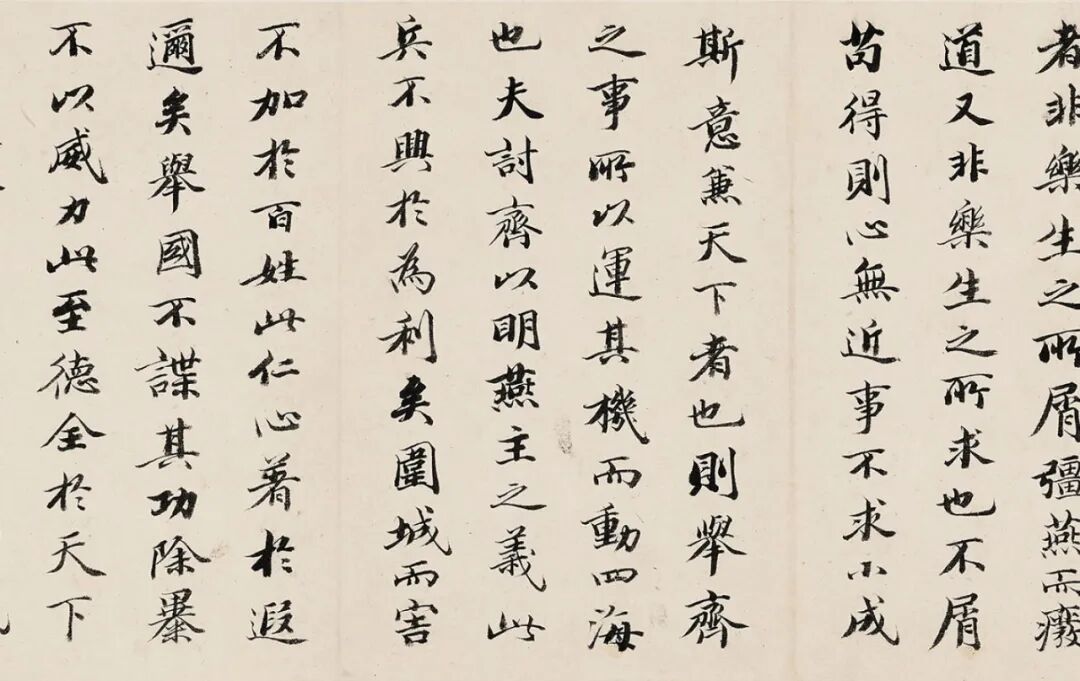 者非樂生之所屑彊燕而癈
道又非樂生之所求也不屑
苟得則心無近事不求小成
斯意兼天下者也則舉齊
之事所以運其機而動四海
也夫討齊以明燕主之義此
兵不興於為利矣圍城而害
不加於百姓此仁心著於遐
邇矣舉國不謀其功除暴
不以威力此至德全於天下